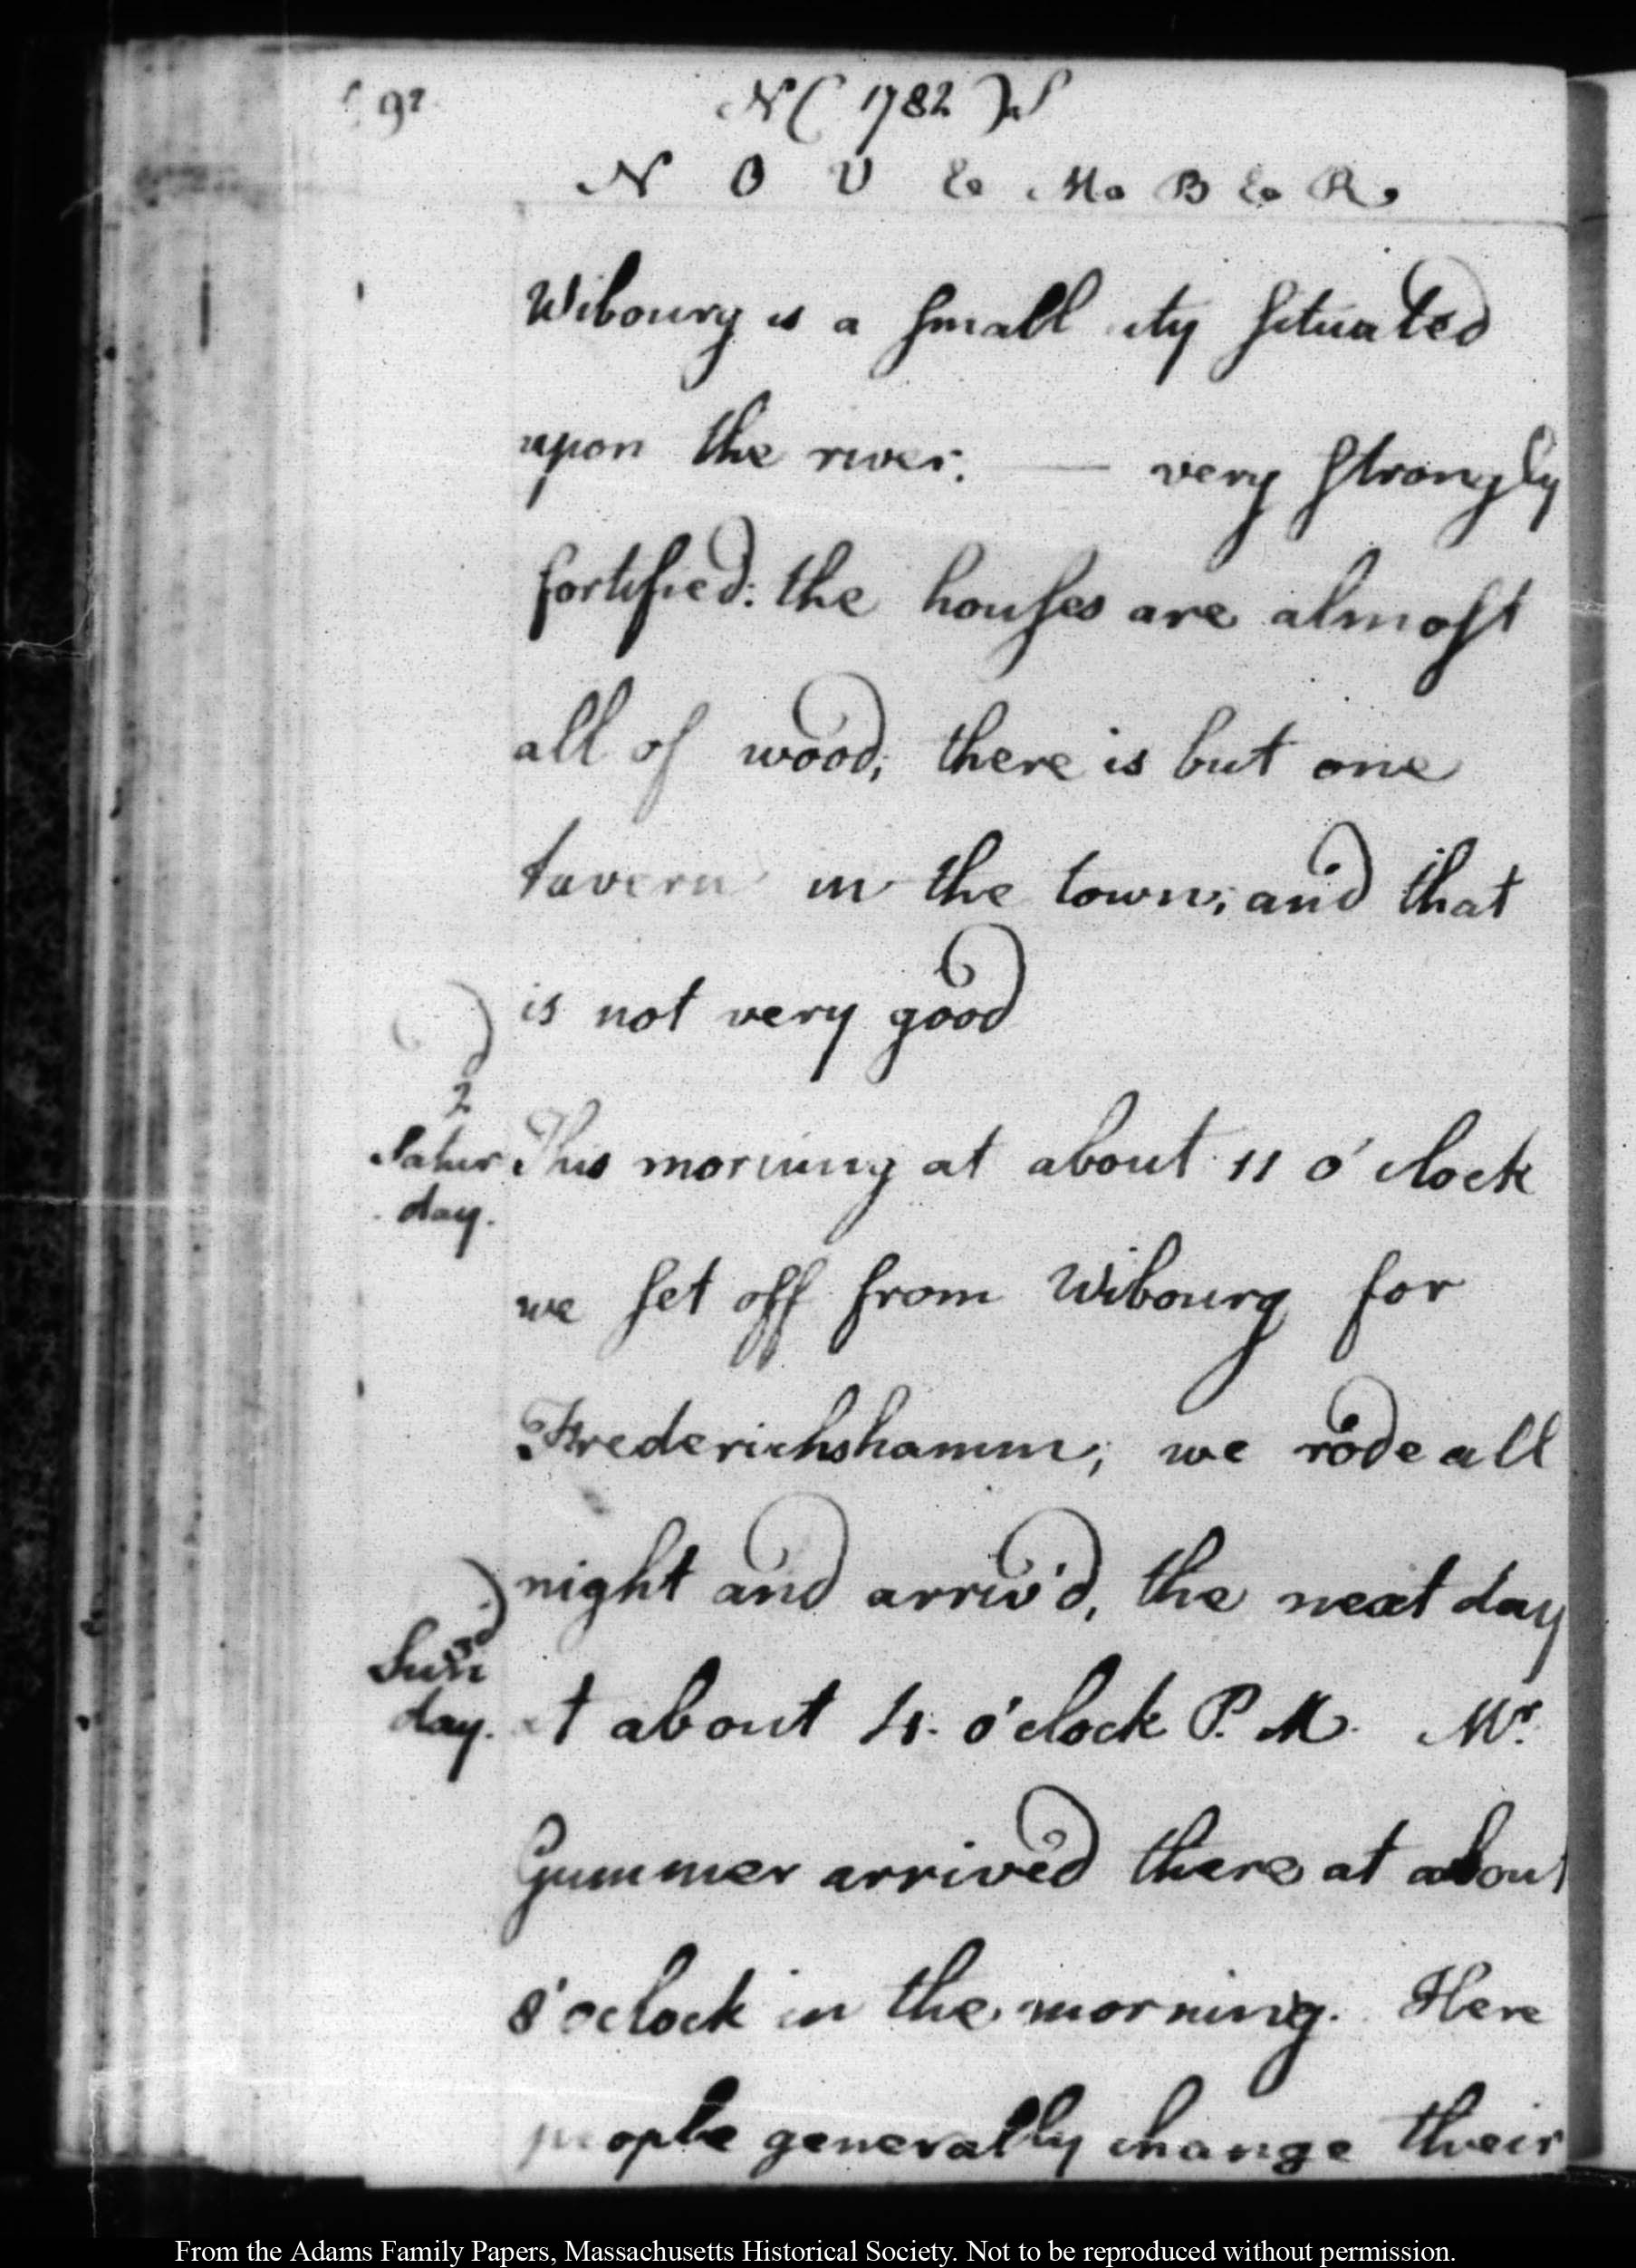 92
N( 1782 )S
N O V E M B E R.
Wibourg is a small city situated
upon the river. — very strongly
fortified: the houses are almost
all of wood; there is but one
tavern in the town; and that
is not very good
2
Satur
day.
This morning at about 11 o'clock
we set off from Wibourg for
Frederichshamm; we rode all
night and arriv'd, the next day
3
Sun
day.
at about 4. o'clock P. M. Mr.
Gummer arrived there at about
8 o'clock in the morning. Here
people generally change their
From the Adams Family Papers, Massachusetts Historical Society. Not to be reproduced without permission.